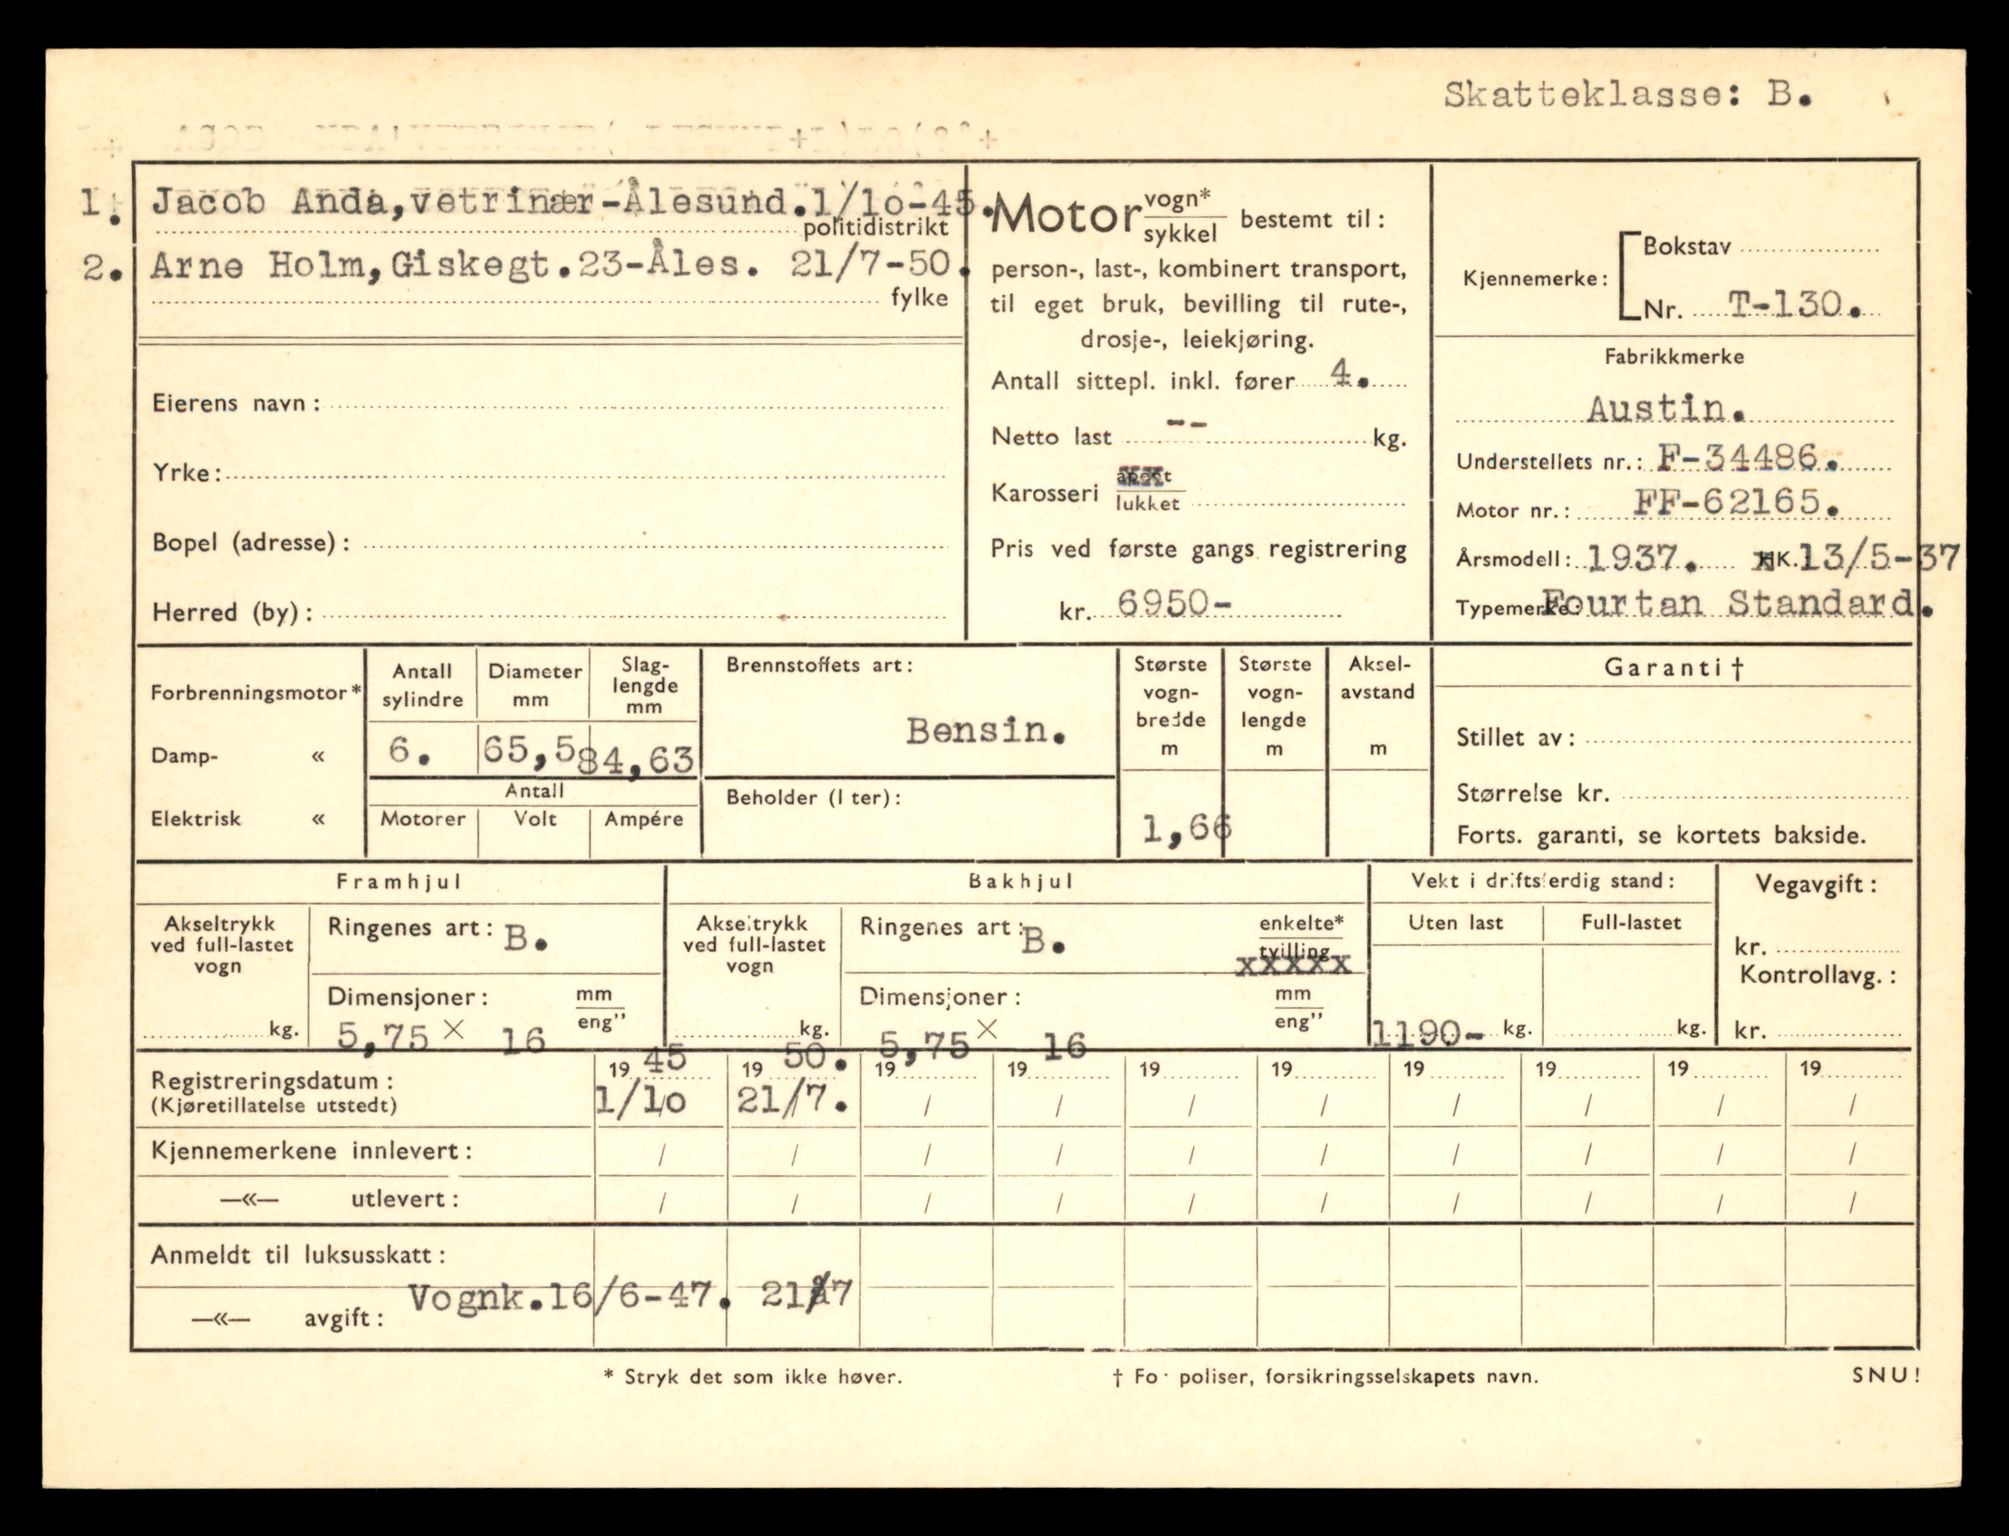 Skatteklasse: B.
1. Jacob Anda,vetrinær-Ålesund.1/1o-45.
politidistrikt
2. Arne Holm,Giskegt.23-Åles. 21/7-50.
fylke
Eierens navn:
Yrke:
Bopel (adresse):
Herred (by):
Motor vogn* / sykkel bestemt til:
person-, last-, kombinert transport,
til eget bruk, bevilling til rute-,
drosje-, leiekjøring.
Antall sittepl. inkl. fører 4.
Netto last -- kg.
Karosseri lukket
Pris ved første gangs registrering
kr. 6950-
Kjennemerke: Bokstav
Nr. T-130.
Fabrikkmerke
Austin.
Understellets nr.: F-34486.
Motor nr.: FF-62165.
Årsmodell: 1937. HK. 13/5-37
Typemerke: Fourtan Standard.
Forbrenningsmotor*
Damp- «
Elektrisk «
Antall sylindre
6.
Diameter mm
65,5
Slag-lengde mm
84,63
Antall
Motorer Volt Ampére
Brennstoffets art:
Bensin.
Beholder (l ter):
Største vogn-bredde m
1,66
Største vogn-lengde m
Aksel-avstand m
Garanti †
Stillet av:
Størrelse kr.
Forts. garanti, se kortets bakside.
Framhjul
Akseltrykk
ved full-lastet
vogn
kg.
Ringenes art: B.
Dimensjoner: mm / eng"
5,75 × 16
Bakhjul
Akseltrykk
ved full-lastet
vogn
kg.
Ringenes art: B. enkelte* / tvilling
xxxxx
Dimensjoner: mm / eng"
5,75 × 16
Vekt i driftsferdig stand:
Uten last Full-lastet
1190- kg. kg.
Vegavgift:
kr.
Kontrollavg.:
kr.
19 45 19 50. 19 19 19 19 19 19 19 19
Registreringsdatum: 1/1o 21/7. / / / / / / / /
(Kjøretillatelse utstedt)
Kjennemerkene innlevert: / / / / / / / / / /
—«— utlevert: / / / / / / / / / /
Anmeldt til luksusskatt:
—«— avgift: Vognk.16/6-47. 21/7
* Stryk det som ikke høver. † Fo· poliser, forsikringsselskapets navn. SNU!